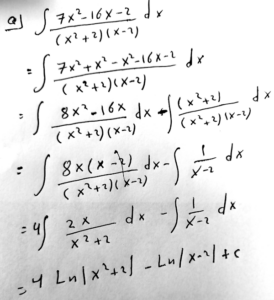 a) ∫ 7x²-16x-2 / (x²+2)(x-2) dx
= ∫ 7x²+x²-x²-16x-2 / (x²+2)(x-2) dx
= ∫ 8x²-16x / (x²+2)(x-2) dx - ∫ (x²+2) / (x²+2)(x-2) dx
= ∫ 8x(x-2) / (x²+2)(x-2) dx - ∫ 1 / x-2 dx
= 4∫ 2x / x²+2 dx - ∫ 1 / x-2 dx
= 4 Ln|x²+2| - Ln|x-2| + c